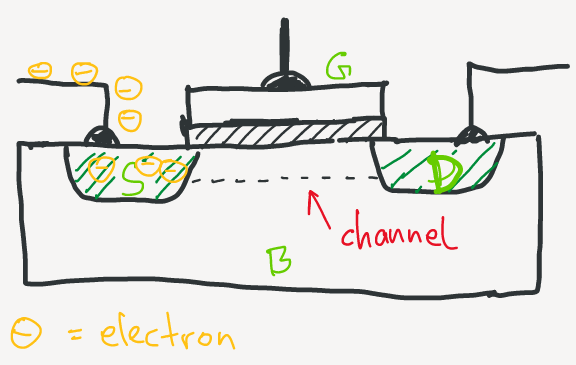 G
S
D
channel
B
⊖ = electron